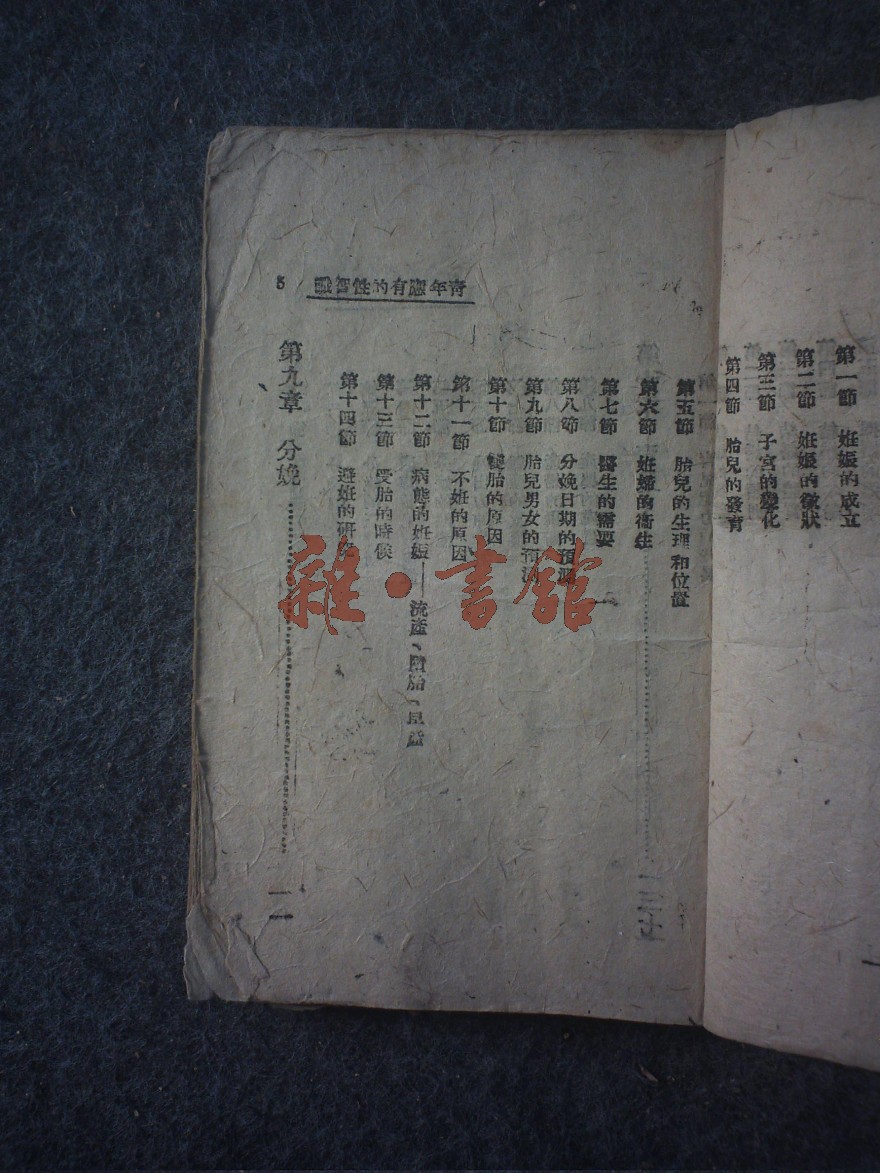 第一節 妊娠的成立
第二節 妊娠的徵狀
第三節 子宮的變化
第四節 胎兒的發育
識智性的有應年青
5
第五節 胎兒的生理和位置
第六節 妊娠的衛生
第七節 醫生的需要
第八節 分娩日期的預測
第九節 胎兒男女的預測
第十節 雙胎的原因
第十一節 不妊的原因
第十二節 病態的妊娠——流產、墮胎、早產
第十三節 受胎的時候
第十四節 避妊的研究
第九章 分娩
雜·書館